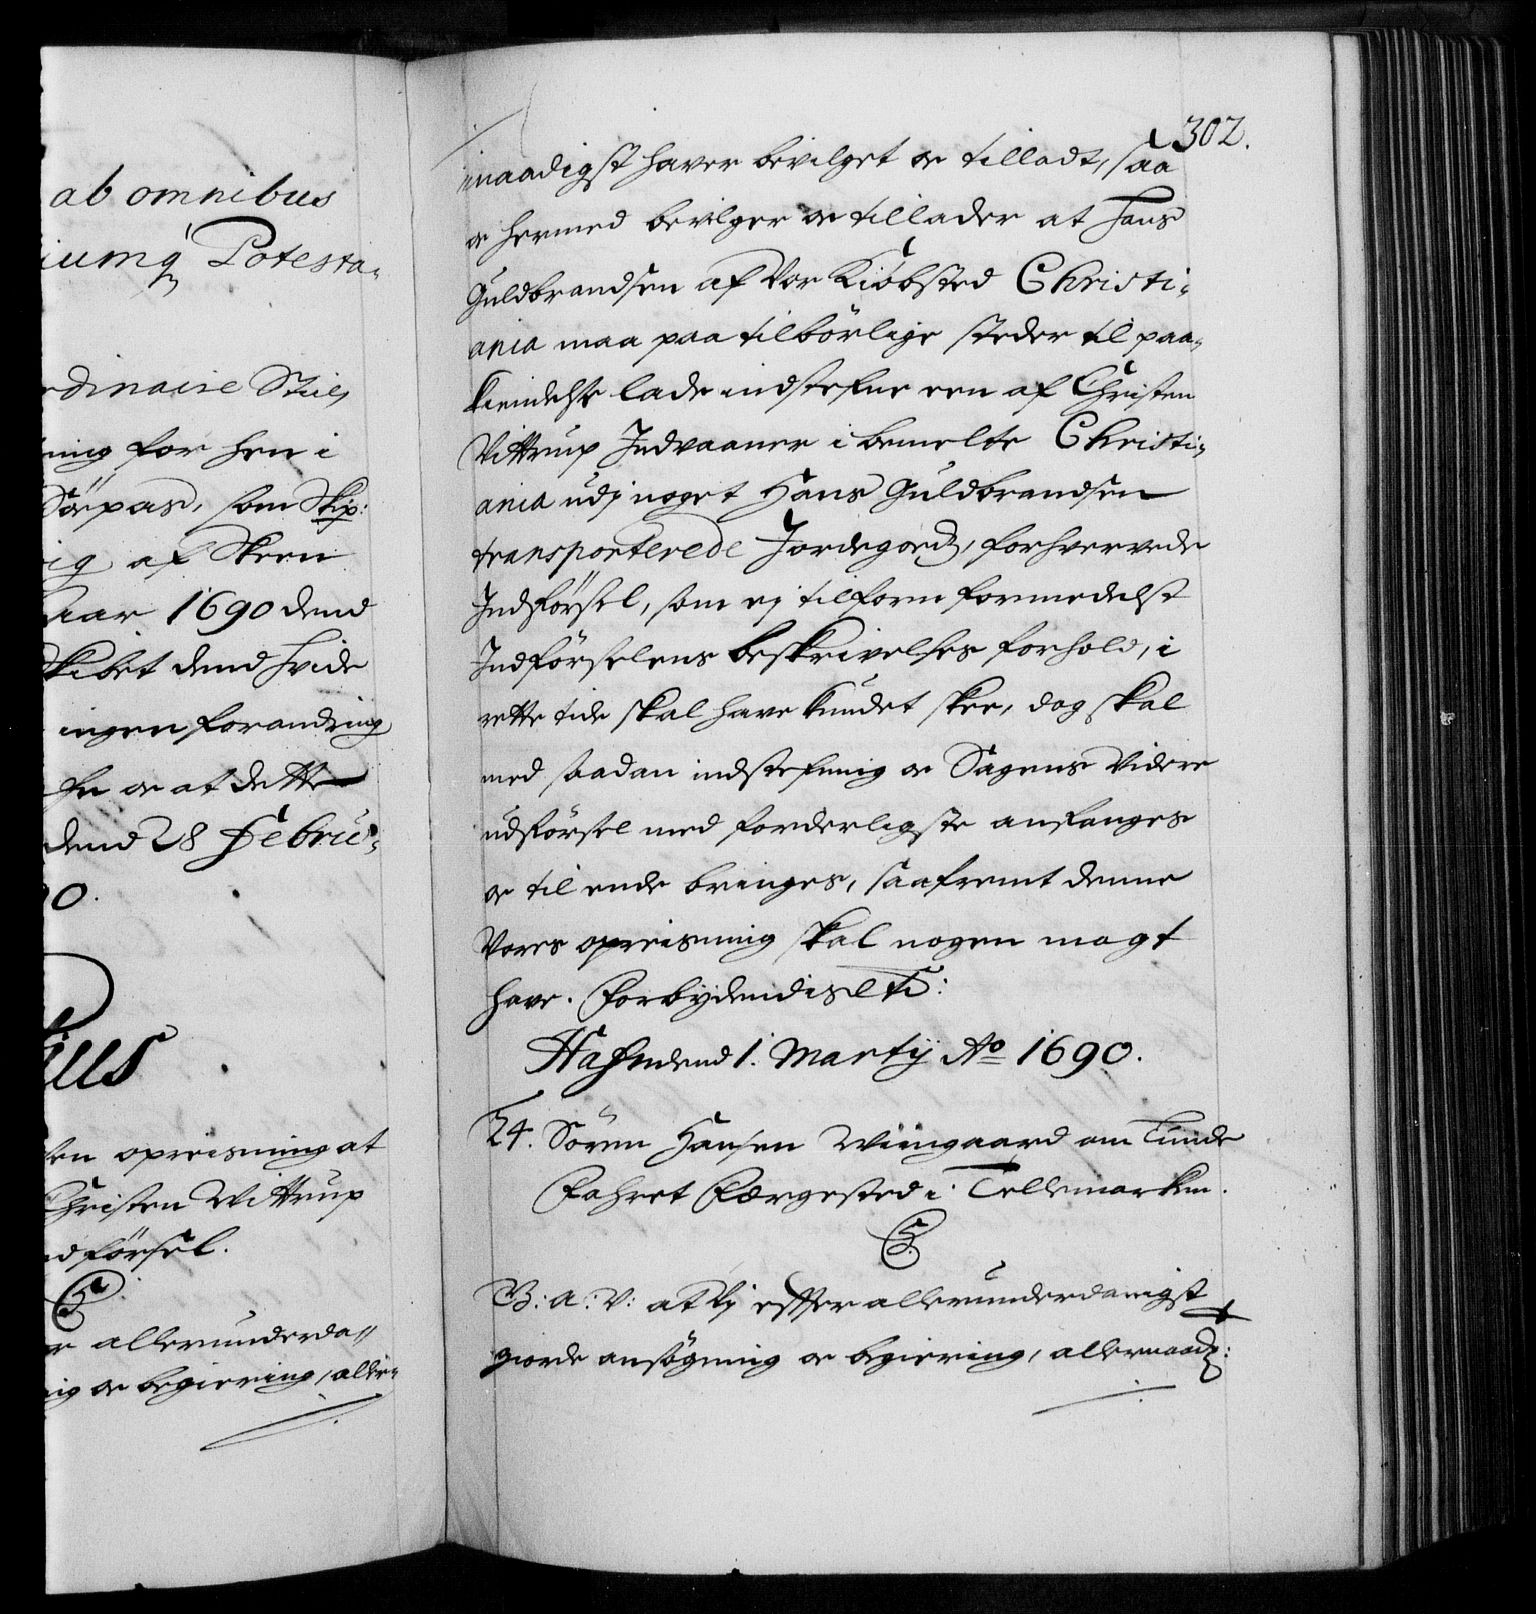 ab omnibus
iumq Potesta-
rdinaire Stiil,
ning for hen i
Söepas, som Skip:
ig af Skeen
aar 1690 dend
Skibet dend hvide
ingen forandring
for oc at dette
dend 28 Febru-
90.
sen opreisning at
Christen Wittrup
ndförsel.
G
er allerunderda-
nig oc begiering, aller-
302.
naadigst hafver bevilget oc tilladt, saa
oc hermed bevilger oc tillader at Hans
Guldbrandsen af Vor Kiöbsted Christi-
ania maa paa tilbörlige steder til paa-
kiendelse lade indstefne een af Christen
Vittrup Indvaaner i bemelte Christi-
ania udj noget Hans Guldbrandsen
transporterede Jordegodz, forhvervede
Indförsel, som ej tilforn formedelst
Indförselens beskrivelses forhold, i
rette tide skal have kundet skee, dog skal
med saadan indstefning oc Sagens Videre
udförsel med forderligste anfanges
oc til ende bringes, saafremt denne
Vores opreisning skal nogen magt
have. Forbydendis etc:
Hafn dend 1. Martij Ao 1690.
24. Sören Hansen Wiingaard om Tinde
Fahret Færgested i Tellemarken.
G
B: a: V: at Vj efter allerunderdanigst
giorde ansögning oc begiering, allernaadz: